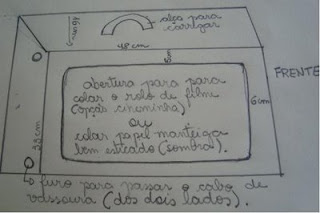 alça para
carregar
48 cm
FRENTE
abertura para para
colar o rolo de filme
(opção cineminha)
ou
colar papel manteiga
bem esticado (sombra).
6 cm
33 cm
furo para passar o cabo de
vassoura (dos dois lados).